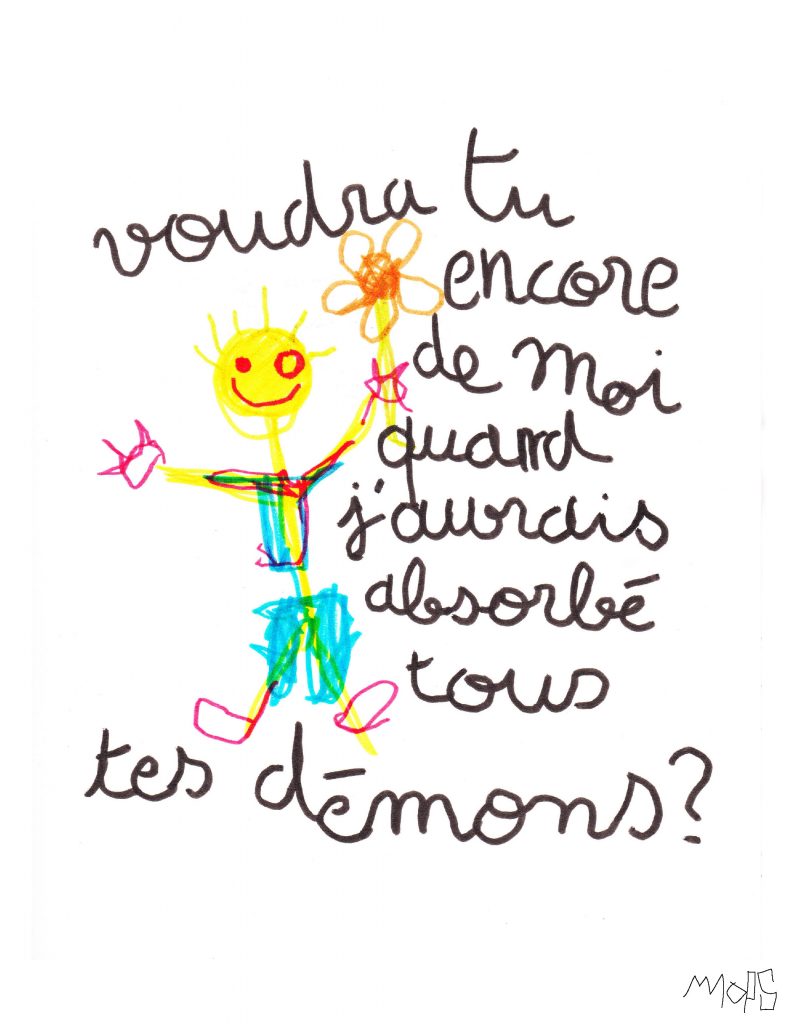 voudra tu
encore
de moi
quand
j'aurais
absorbé
tous
tes démons?
MOPS